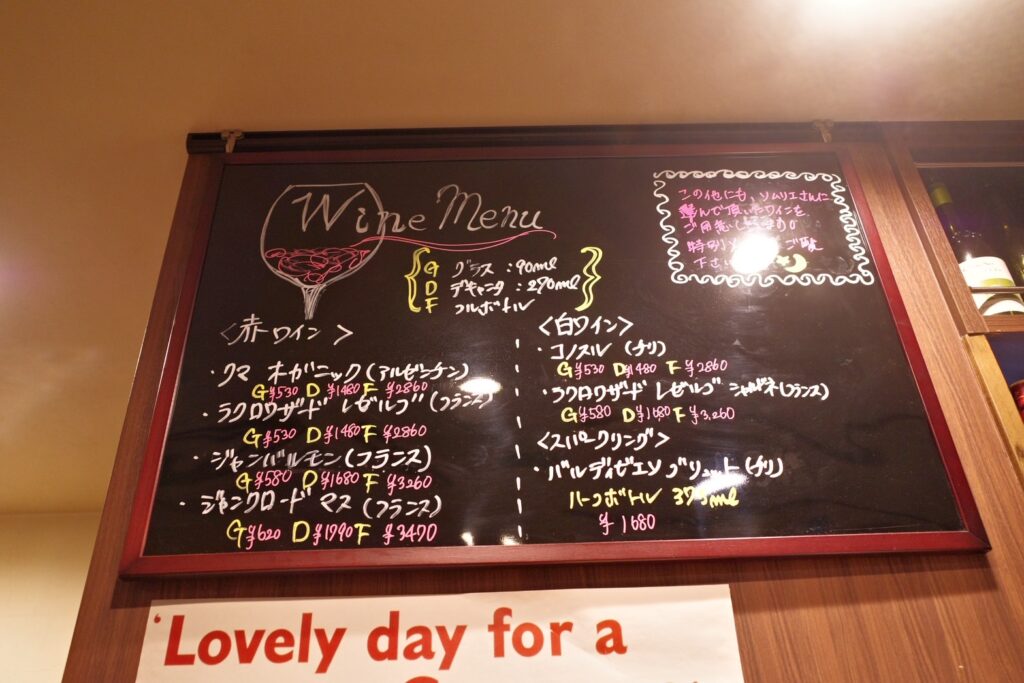 Wine Menu
G グラス : 90ml
D デキャンタ : 290ml
F フルボトル
この他にも、ソムリエさんに
選んで頂いたワインを
ご用意
特別
下さい
<赤ワイン>
クマ オガニック(アルゼンチン)
G ¥530 D ¥1480 F ¥2860
・ラクロワザード レゼルブ(フランス)
G ¥530 D ¥1480 F ¥2860
・ジャンバルモン(フランス)
G ¥580 D ¥1680 F ¥3260
・ジャンクロード マス(フランス)
G ¥620 D ¥1990 F ¥3470
<白ワイン>
・コノスル (チリ)
G ¥530 D ¥1480 F ¥2860
・ラクロワザード レゼルブ シャルドネ(フランス)
G ¥580 D ¥1680 F ¥3,260
<スパークリング>
・バルディビエソ ブリュット(チリ)
ハーフボトル 375ml
¥1680
'Lovely day for a